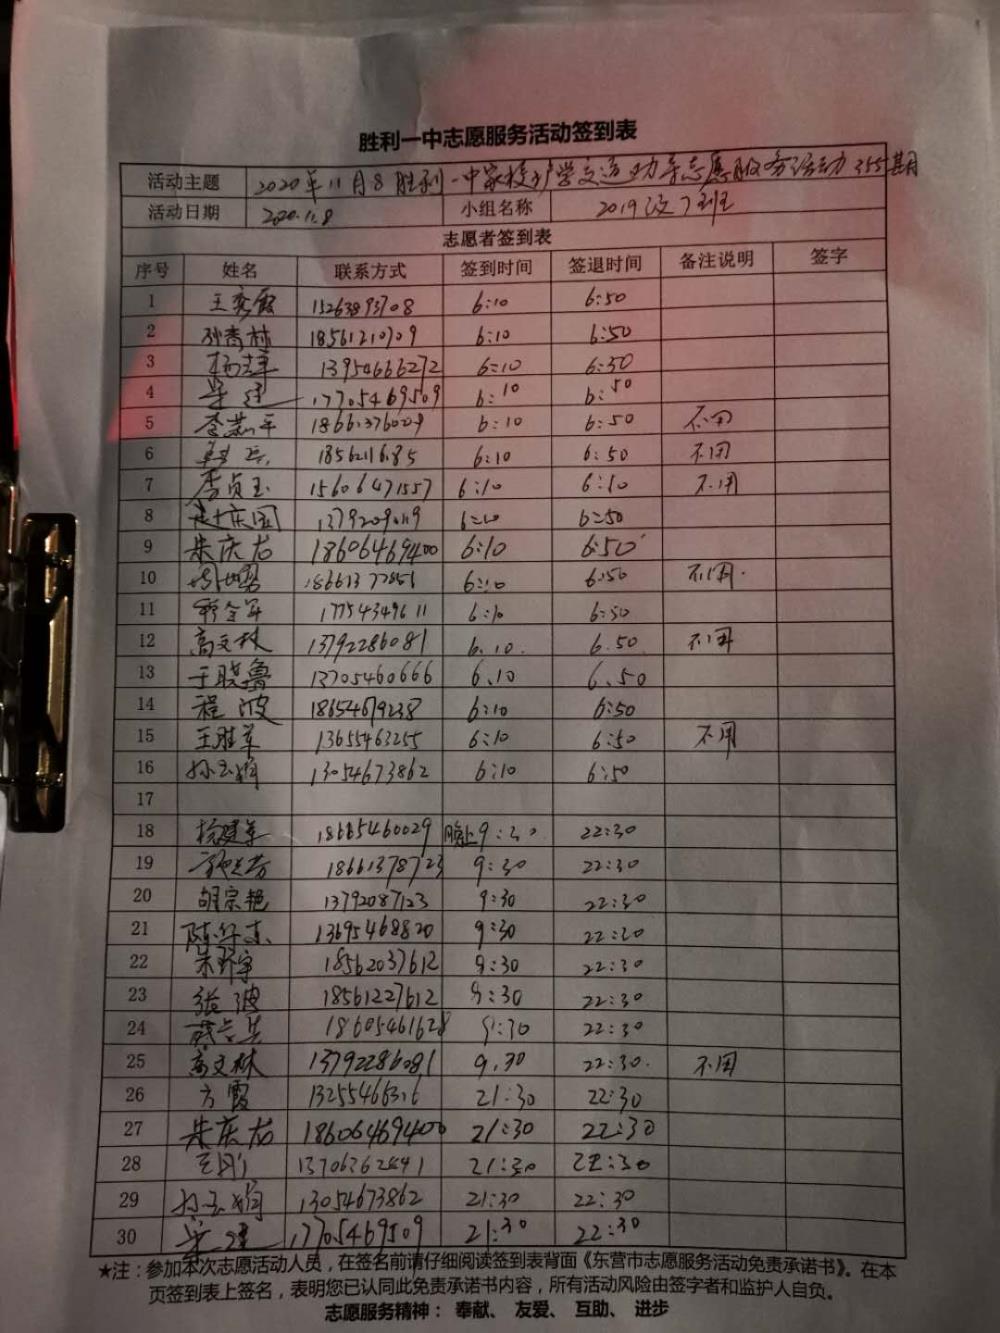 胜利一中志愿服务活动签到表
活动主题 2020年11月8胜利一中家校护学交通劝导志愿服务活动355期
活动日期 2020.11.8 小组名称 2019级7班
志愿者签到表
序号 姓名 联系方式 签到时间 签退时间 备注说明 签字
1 王秀霞 15263893708 6:10 6:50
2 孙秀林 18561210709 6:10 6:50
3 13954666272 6:10 6:50
4 梁建 17705469509 6:10 6:50
5 18661376009 6:10 6:50 不用
6 6:10 6:50 不用
7 李贞玉 15606471557 6:10 6:10 不用
8 6:10 6:50
9 朱庆龙 18606469400 6:10 6:50
10 18661377851 6:10 6:50 不用
11 6:10 6:50
12 高文林 13792286081 6.10. 6.50. 不用
13 于晓鲁 13705460666 6.10 6.50
14 程波 18654679238 6:10 6:50
15 王胜军 13655463255 6:10 6:50 不用
16 孙玉娟 13054673862 6:10 6:50
17
18 杨建军 18685460029 晚上9:30 22:30
19 18661378723 9:30 22:30
20 胡宗艳 13792087123 9:30 22:30
21 13695468820 9:30 22:30
22 18562037612 9:30 22:30
23 张波 18561227612 9:30 22:30
24 18605461628 9:30 22:30
25 高文林 13792286081 9.30 22:30. 不用
26 方霞 21:30 22:30
27 朱庆龙 18606469400 21:30 22:30
28 王刚 13706362841 21:30 22:30
29 孙玉娟 13054673862 21:30 22:30
30 梁建 17705469509 21:30 22:30
★注：参加本次志愿活动人员，在签名前请仔细阅读签到表背面《东营市志愿服务活动免责承诺书》。在本
页签到表上签名，表明您已认同此免责承诺书内容，所有活动风险由签字者和监护人自负。
志愿服务精神： 奉献、 友爱、 互助、 进步